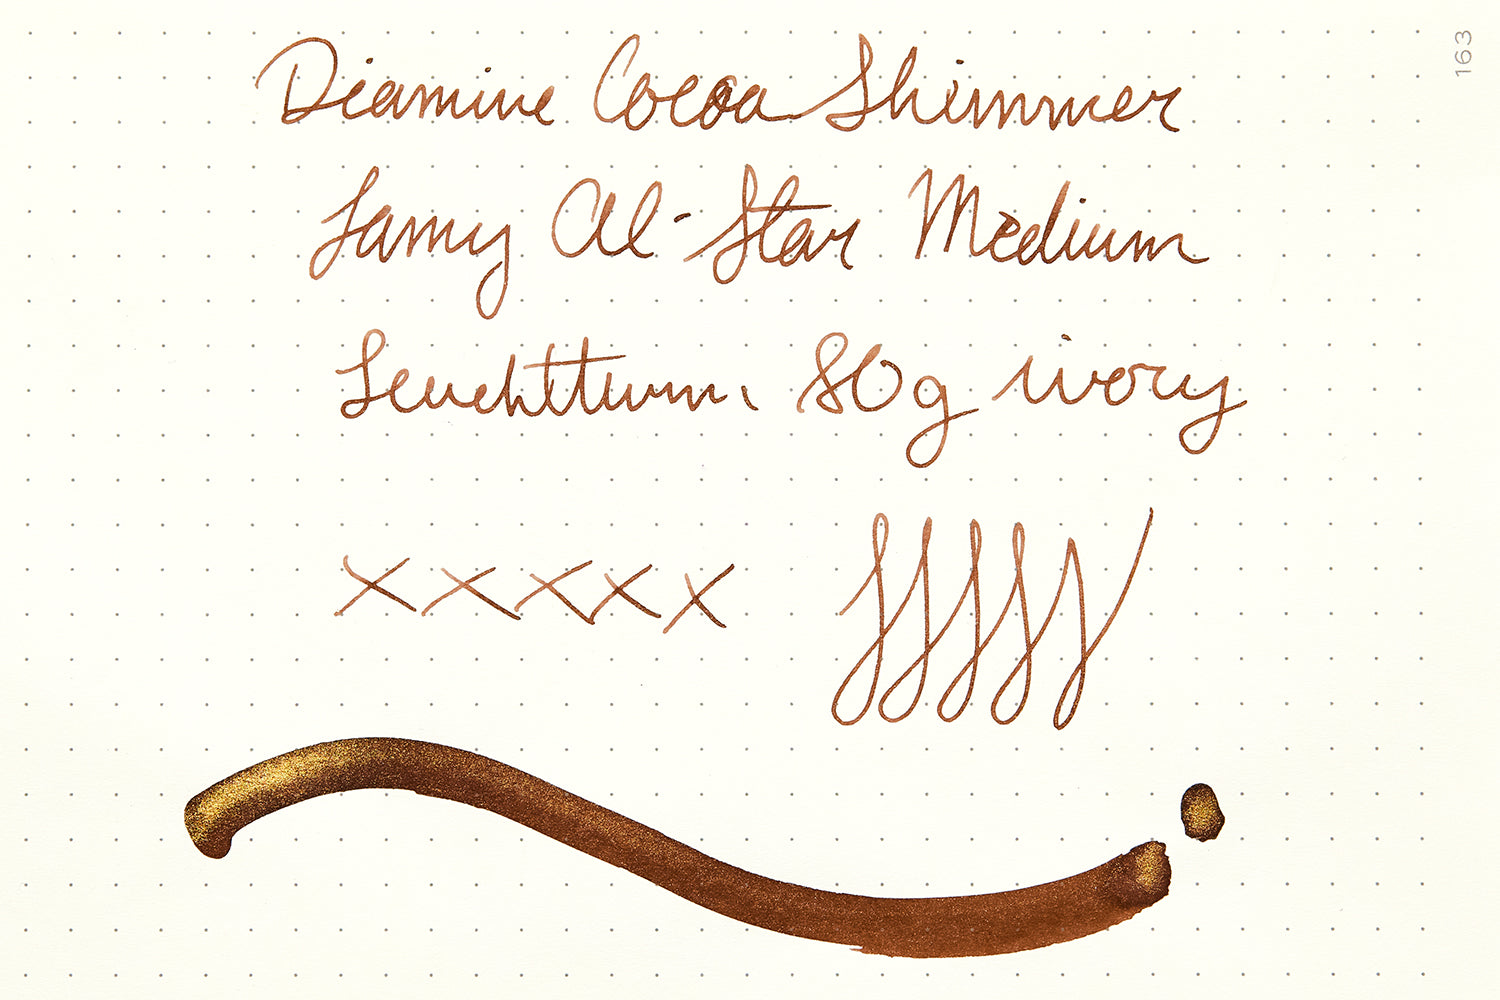 Diamine Cocoa Shimmer
Lamy Al-Star Medium
Leuchtturm, 80g ivory
xxxxx
163